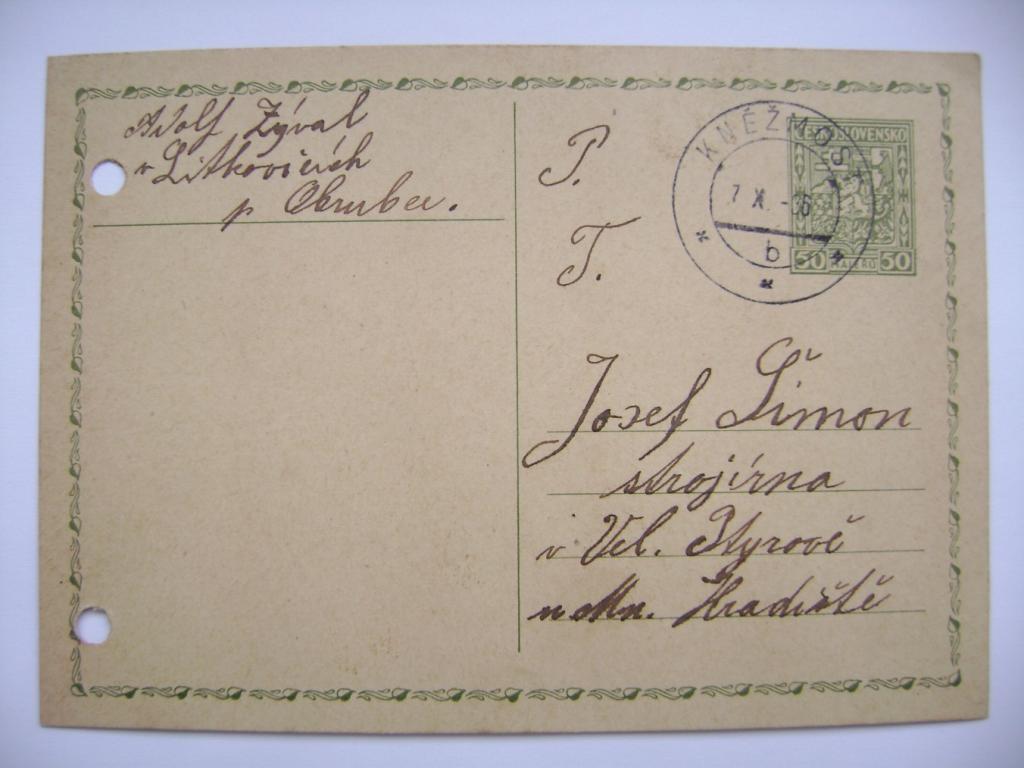 Adolf Zýval
v Litkovicích
p Obrubec.
P.
T.
KNĚŽMOST
7 X. -36
b
ČESKOSLOVENSKO
50 HALÉŘŮ 50
Josef Šimon
strojírna
v Vel. Ptyrově
u Mn. Hradiště